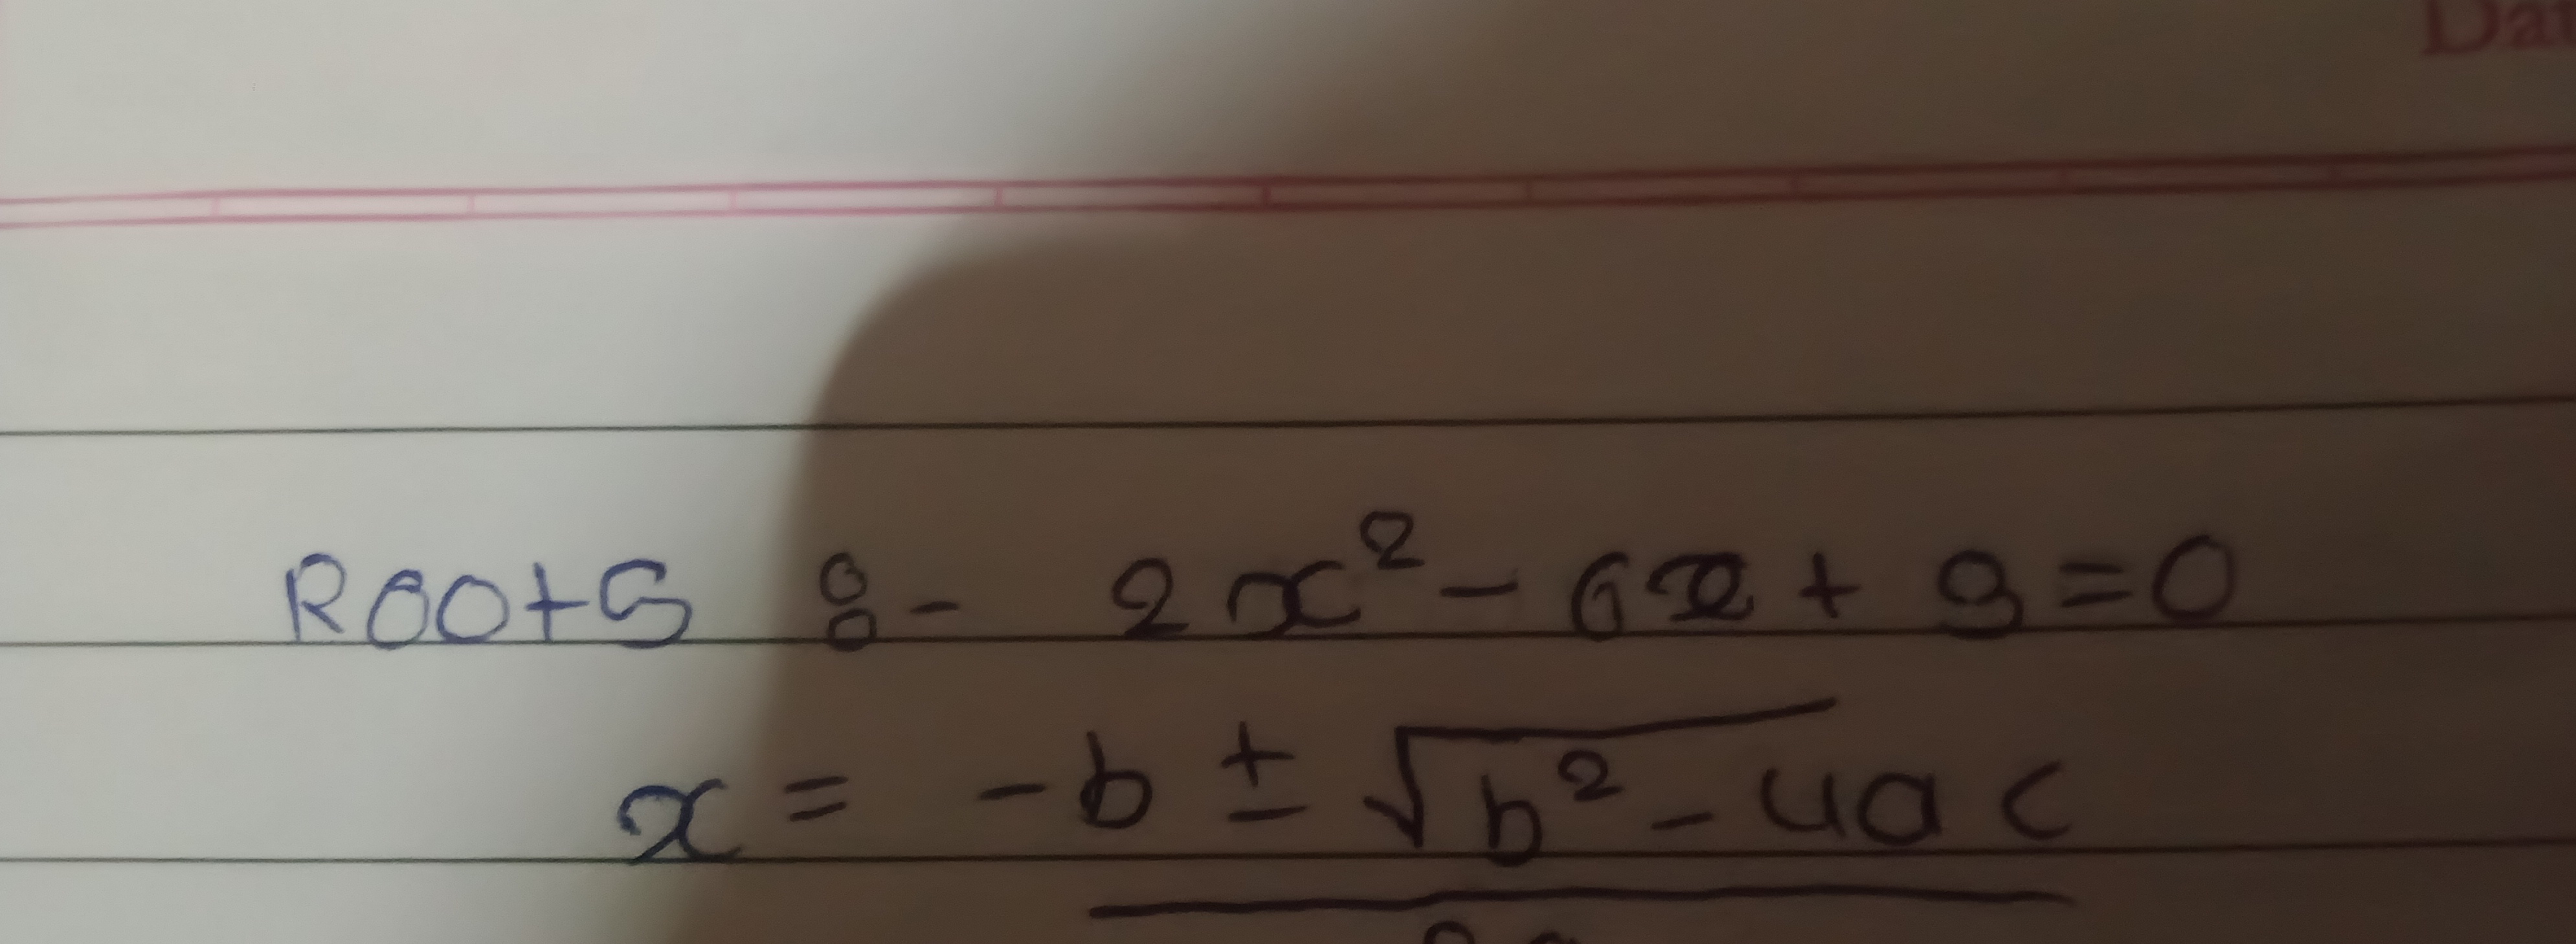 Dat
Roots :- 2x² - 6x + 9 = 0
x = -b ± √b² - 4ac